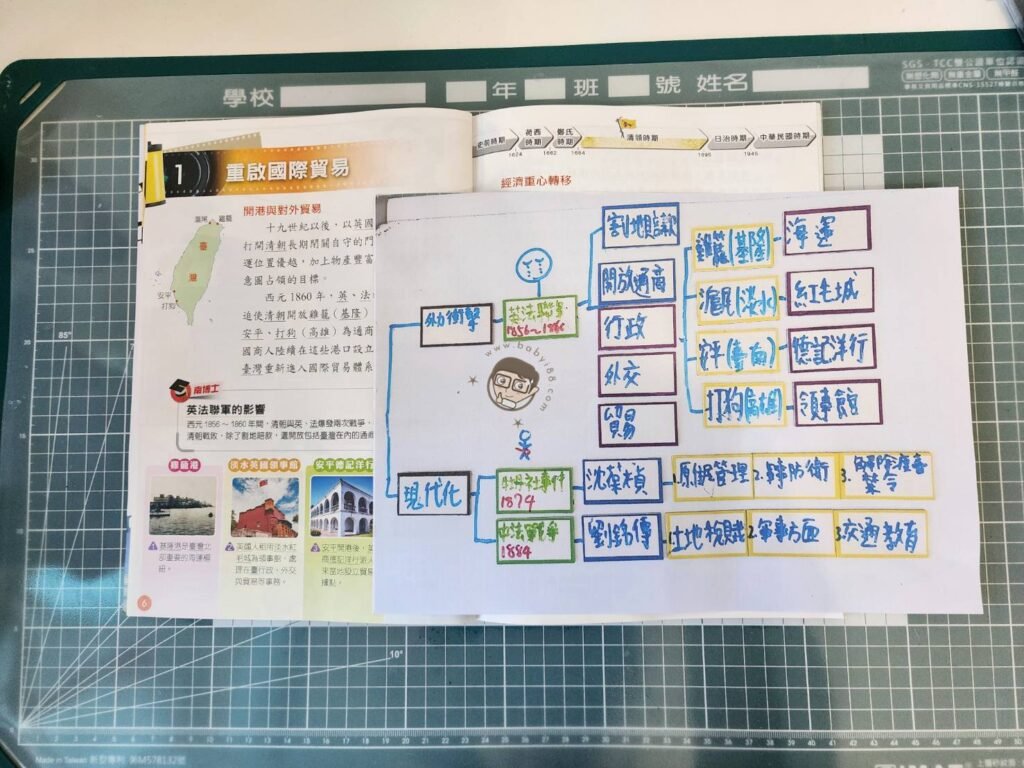 SGS．TCC雙公證單位認
無重金屬
學校 年 班 號 姓名
史前時期 荷西時期 鄭氏時期 清領時期 日治時期 中華民國時期
1624 1662 1684 1895 1945
1 重啟國際貿易
經濟重心轉移
開港與對外貿易
十九世紀以後，以英國
打開清朝長期閉關自守的門
運位置優越，加上物產豐富
意圖占領的目標。
西元1860年，英、法
迫使清朝開放雞籠(基隆)
安平、打狗(高雄)為通商
國商人陸續在這些港口設立
臺灣重新進入國際貿易體系
滬尾 雞籠
臺灣
安平
打狗
博士
英法聯軍的影響
西元1856～1860年間，清朝與英、法爆發兩次戰爭，
清朝戰敗，除了割地賠款，還開放包括臺灣在內的通商
雞籠港 淡水英國領事館 安平德記洋行
基隆港是臺灣北部重要的海運樞紐。
英國人租用淡水紅毛城為領事館，處理在臺行政、外交與貿易等事務。
安平開港後，英
商德記洋行派人
來當地設立貿易
據點。
6
外力衝擊
英法聯軍
1856～1860
割地賠款
開放通商
行政
外交
貿易
雞籠(基隆) 海運
滬尾(淡水) 紅毛城
安平(臺南) 德記洋行
打狗(高雄) 領事館
www.baby188.com
現代化
牡丹社事件
1874
沈葆楨
2.軍事防衛
3.解除渡臺禁令
中法戰爭
1884
劉銘傳
2.軍事方面
3.交通教育
85°
10°
Made in Taiwan 新型專利 第M578132號